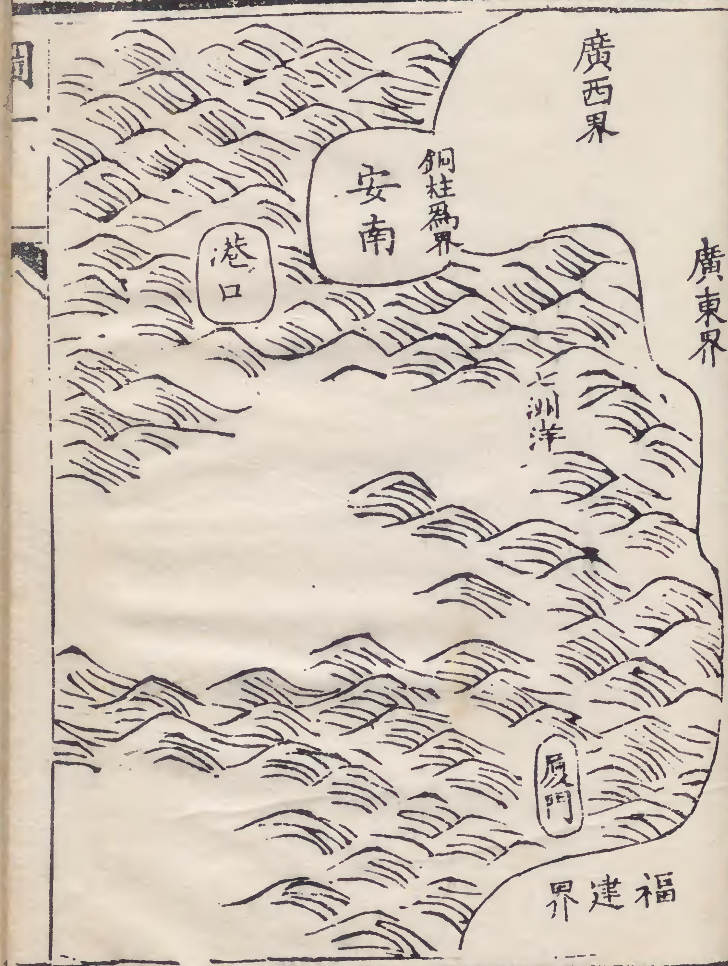 廣西界
廣東界
銅柱爲界
安南
港口
七洲洋
厦門
福建界
圖一